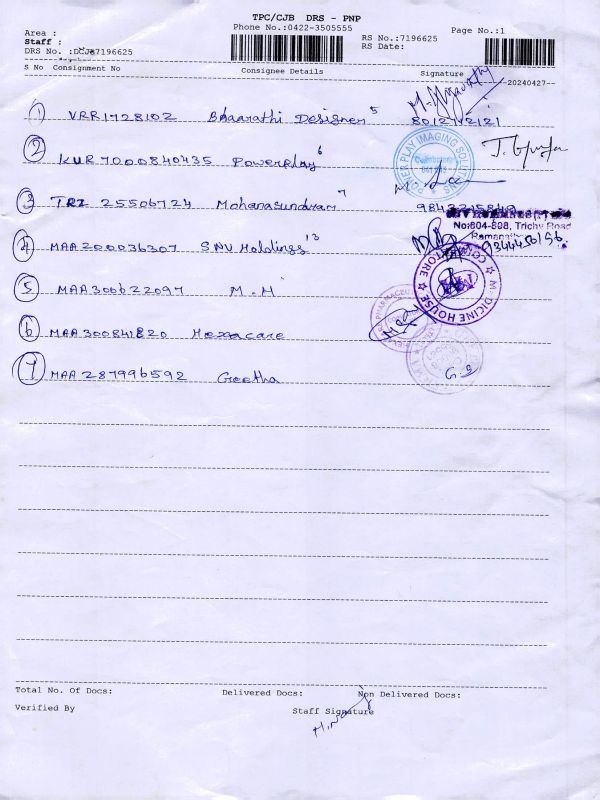 TPC/CJB DRS - PNP
Phone No.:0422-3505555
Area :
Staff :
DRS No. :DCJB7196625
RS No.:7196625
RS Date:
Page No.:1
S No Consignment No Consignee Details Signature 20240427
1 VRR1728102 Bhaarathi Designer 5 8012172121
2 KUR7000840435 Powerplay 6
POWER PLAY IMAGING SOLUTIONS
3 TRZ 25506724 Mohanasundram 7 9843215849
No:604-608, Trichy Road
4 MAA200036307 SNV Holdings 13
5 MAA300622097 M.H
MEDICINE HOUSE
COIMBATORE
6 MAA300841820 Hexacare
7 MAA287996592 Geetha
Total No. Of Docs: Delivered Docs: Non Delivered Docs:
Verified By Staff Signature